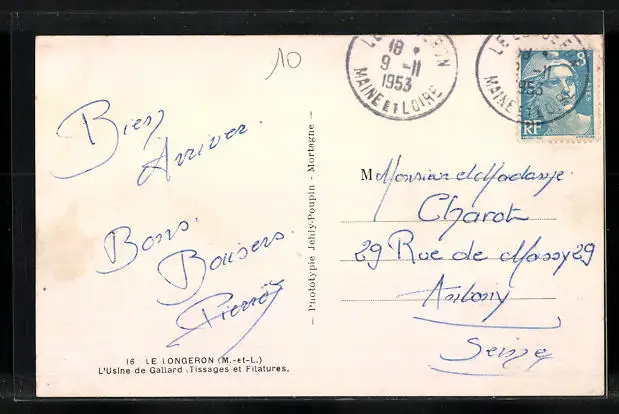 10
LE LONGERON
18 *
9 -11
1953
MAINE ET LOIRE
LE LONGERON
18 *
-11
1953
MAINE ET LOIRE
3F
POSTES
RF
Bien
Arriver.
Bons.
Baisers.
Pierrot
16 LE LONGERON (M.-et-L.)
L'Usine de Gallard, Tissages et Filatures.
— Phototypie Jehly-Poupin - Mortagne —
M Monsieur et Madame
Charot
29 Rue de Massy 29
Antony
Seine